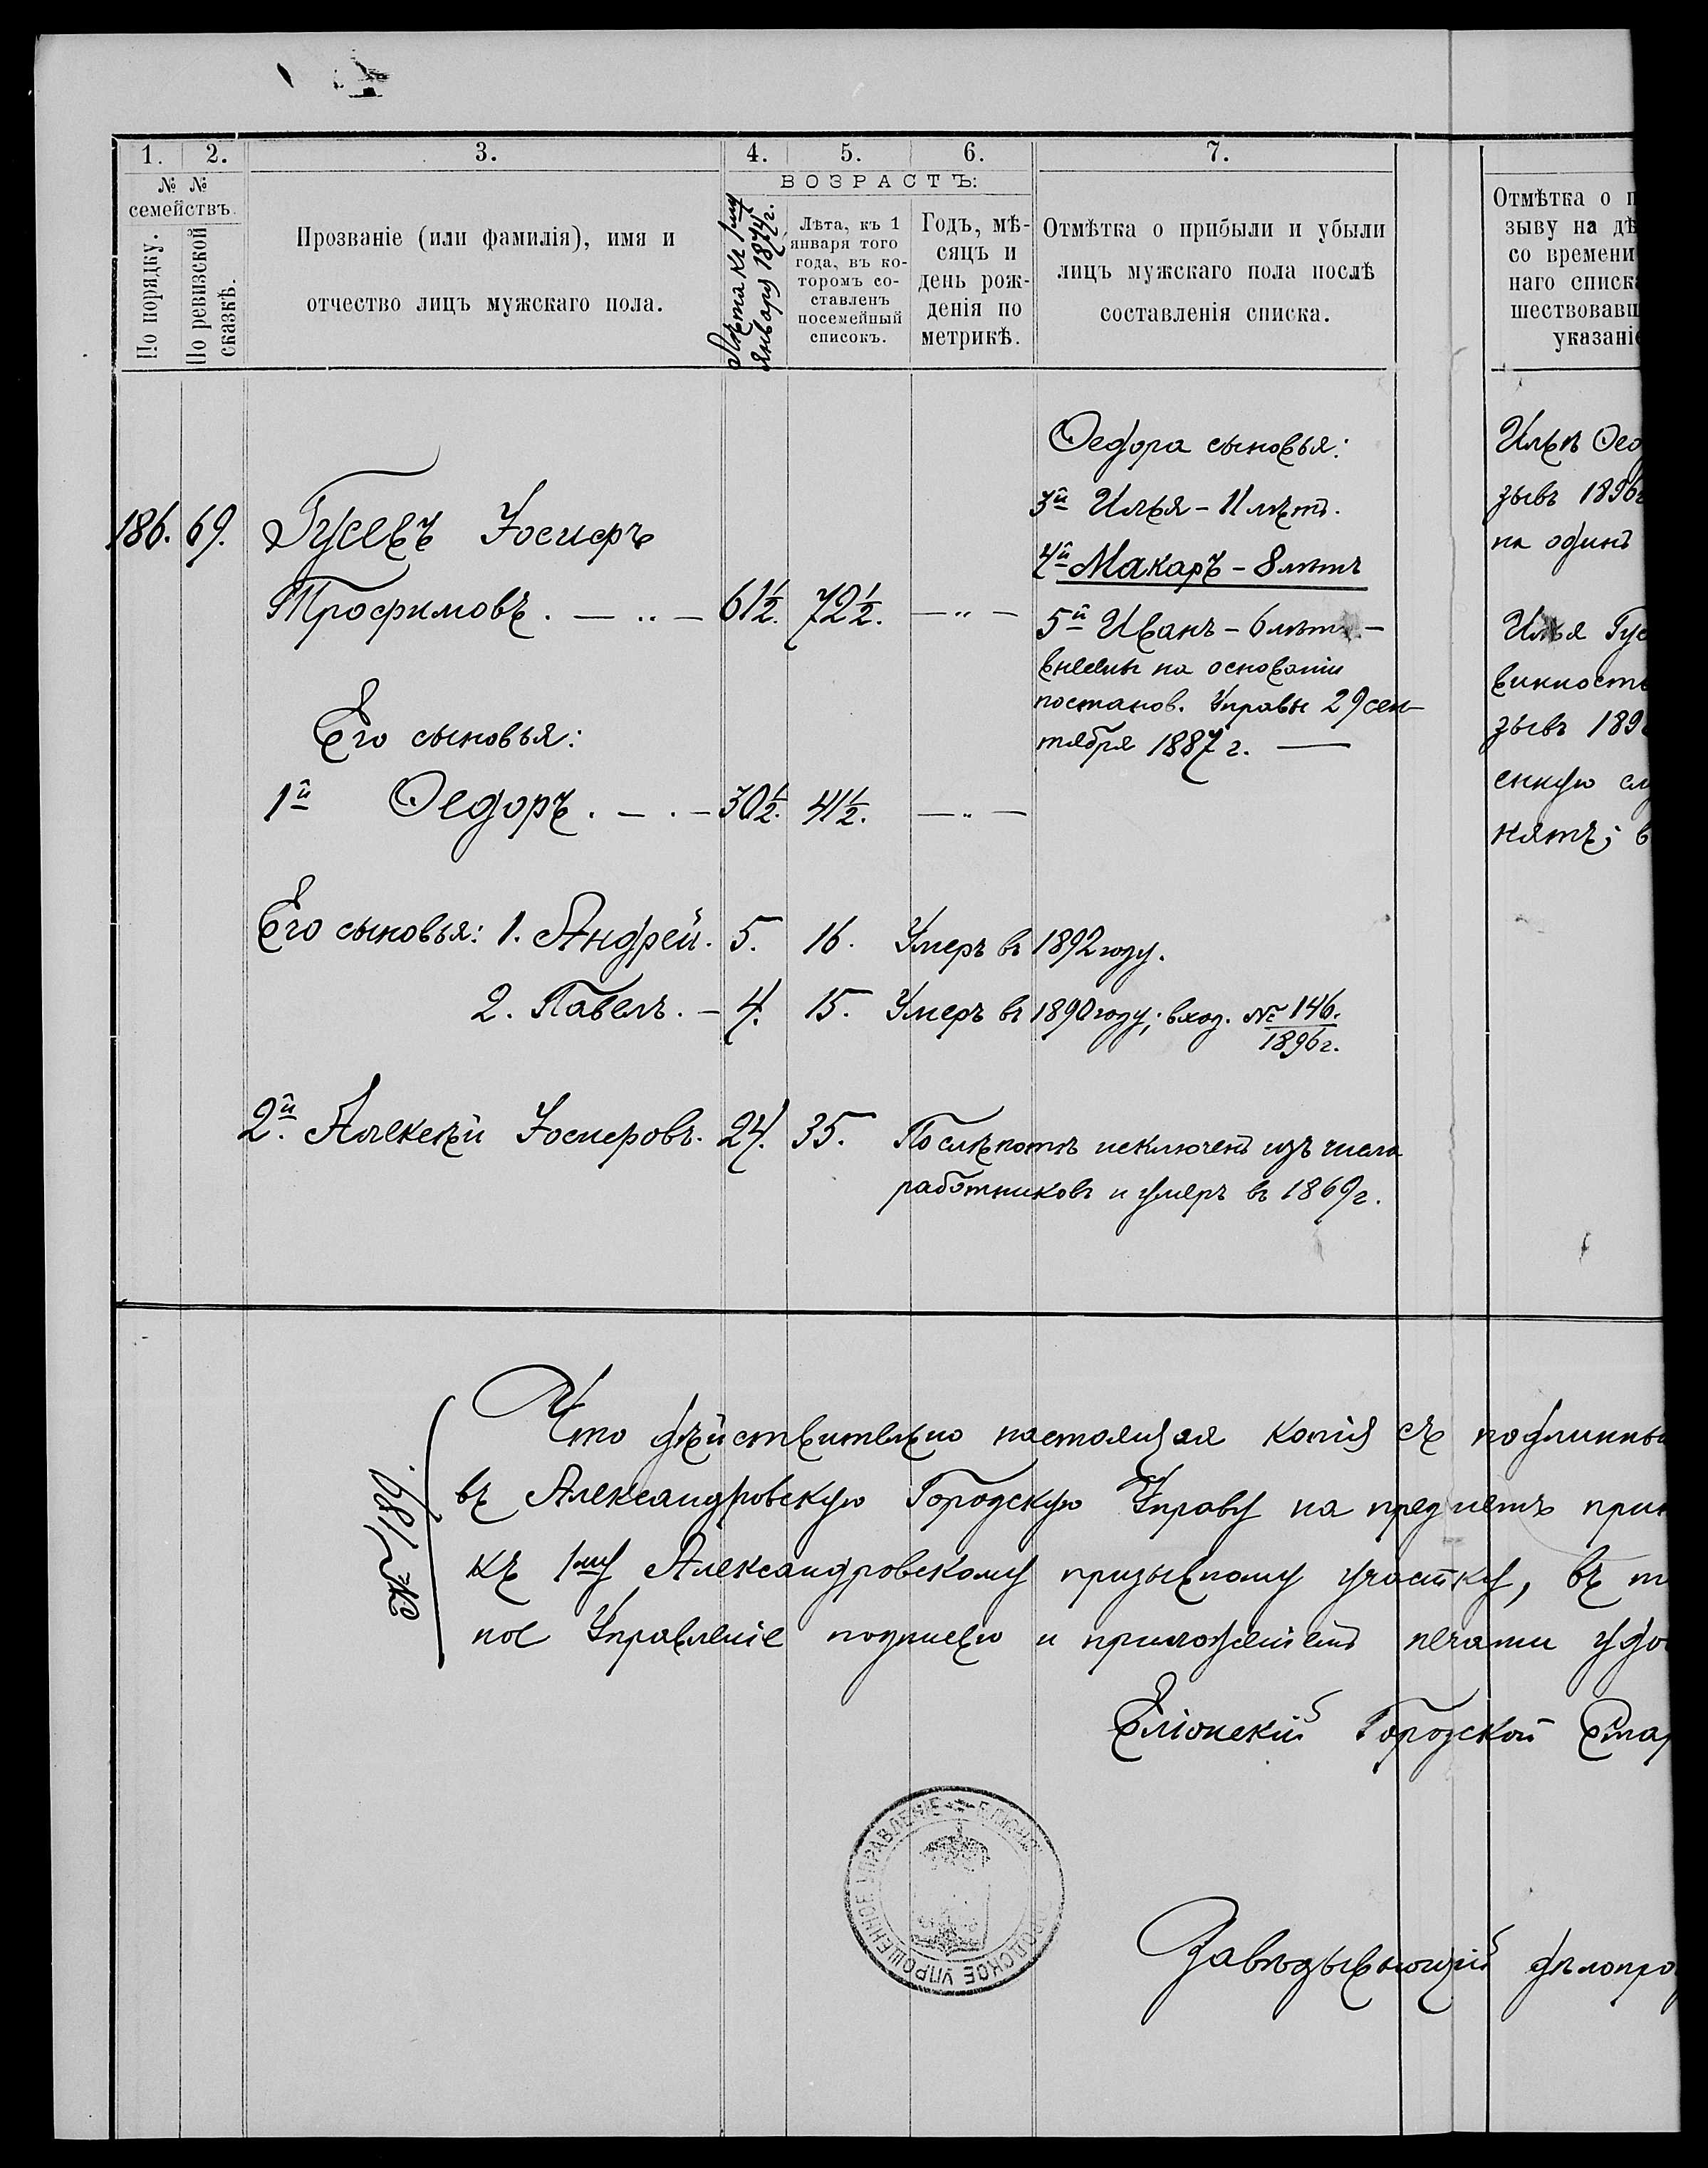 1. 2. 3. 4. 5. 6. 7.
№ №
семействъ.
По порядку.
По ревизской
сказкѣ.
Прозваніе (или фамилія), имя и
отчество лицъ мужскаго пола.
ВОЗРАСТЪ:
Лѣта къ 1му
января 1874 г.
Лѣта, къ 1
января того
года, въ ко-
торомъ со-
ставленъ
посемейный
списокъ.
Годъ, мѣ-
сяцъ и
день рож-
денія по
метрикѣ.
Отмѣтка о прибыли и убыли
лицъ мужскаго пола послѣ
составленія списка.
Отмѣтка о п
зыву на дѣ
со времени
наго списка
шествовавш
указаніе
186. 69. Гусевъ Іосифъ
Трофимовъ. — „ — 61½. 72½. — „ —
Его сыновья:
1й Ѳедоръ. — . — 30½. 41½. — „ —
Его сыновья: 1. Андрей. 5. 16. Умеръ въ 1892 году.
2. Павелъ. — 4. 15. Умеръ въ 1890 году; вход. № 146.
1896 г.
2й. Алексѣй Іосифовъ. 24. 35. По слѣпотѣ исключенъ изъ числа
работниковъ и умеръ въ 1869 г.
Ѳедора сыновья:
3й Илья - 11 лѣтъ.
4й Макаръ - 8 лѣтъ
5й Иванъ - 6 лѣтъ -
внесены на основаніи
постанов. Управы 29 сен-
тября 1887 г. —
Илья Ѳед
зывъ 1896 г
на одинъ
Илья Гус
винность
зывъ 189
енную сл
нятъ; в
№ 189.
Что дѣйствительно настоящая копія съ подлинны
въ Александровскую Городскую Управу на предметъ при
къ 1му Александровскому призывному участку, въ т
ное Управленіе подписью и приложеніемъ печати удо
Городской Стар
ГОРОДСКОЕ УПРОЩЕННОЕ УПРАВЛЕНІЕ
Завѣдывающій дѣлопро